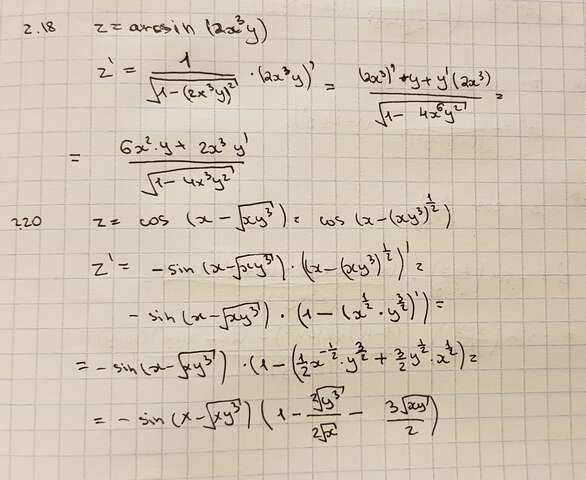 2.18 z = arcsin (2x³y)
z' = 1/√(1-(2x³y)²) · (2x³y)' = ((2x³)' · y + y'(2x³))/√(1- 4x⁶y²) =
= (6x²·y + 2x³ y')/√(1-4x³y²)
220 z = cos (x - √(xy³)) = cos (x-(xy³)^(1/2))
z' = -sin (x-√(xy³)) · (x-(xy³)^(1/2))' =
-sin (x-√(xy³)) · (1 - (x^(1/2) · y^(3/2))') =
= -sin(x-√(xy³)) · (1-(1/2 x^(-1/2) · y^(3/2) + 3/2 y^(1/2) · x^(1/2)) =
= - sin (x-√(xy³)) (1 - ²√(y³)/(2√x) - 3√(xy)/2)